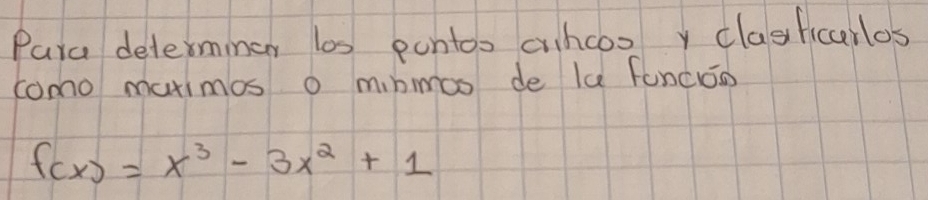 Para determinar los puntos criticos y clasificarlos
como maximos o minimos de la función
f(x) = x³ - 3x² + 1